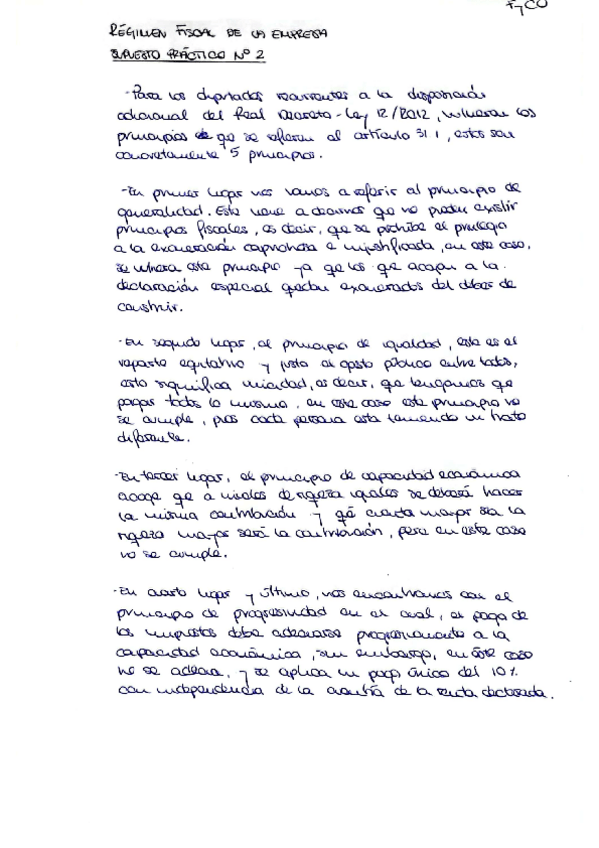 FyCO
RÉGIMEN FISCAL DE LA EMPRESA
SUPUESTO PRÁCTICO Nº 2
-Para los diputados recurrentes a la disposición
adicional del Real Decreto-Ley 12/2012, vulneran los
principios de que se refieren al artículo 31.1, estos son
concretamente 5 principios.
-En primer lugar nos vamos a referir al principio de
generalidad. Este viene a decirnos que no pueden existir
principios fiscales, es decir, que se prohíbe el privilegio
a la exoneración caprichosa e injustificada, en este caso,
se vulnera este principio ya que los que acogen a la
declaración especial quedan exonerados del deber de
construir.
-En segundo lugar, el principio de igualdad, este es el
reparto equitativo y justo al gasto público entre todos,
esto significa unicidad, es decir, que tengamos que
pagar todos lo mismo, en este caso este principio no
se cumple, pues cada persona esta teniendo un trato
diferente.
-En tercer lugar, el principio de capacidad económica
acoge que a niveles de riqueza iguales se deberá hacer
la misma contribución y qé cuanta mayor sea la
riqeza mayor será la contribución, pero en este caso
no se cumple.
-En cuarto lugar y último, nos encontramos con el
principio de progresividad en el cual, el pago de
los impuestos debe adecuarse progresivamente a la
capacidad económica, sin embargo, en éste caso
no se adecua, y se aplica un pago único del 10%
con independencia de la cuantía de la renta declarada.